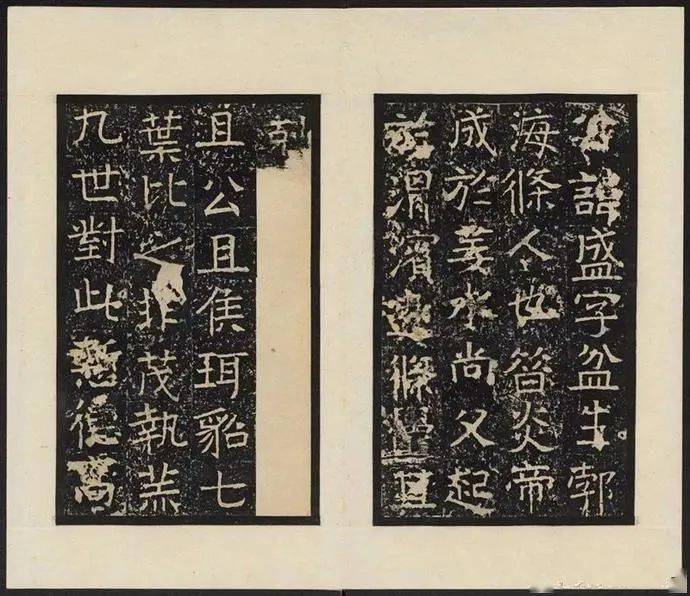 公諱盛字盆生郣
海條人也昔炎帝
成於姜水尚父起
於渭濱條
且公且侯珥貂七
葉比之非茂執羔
九世對此慙德高